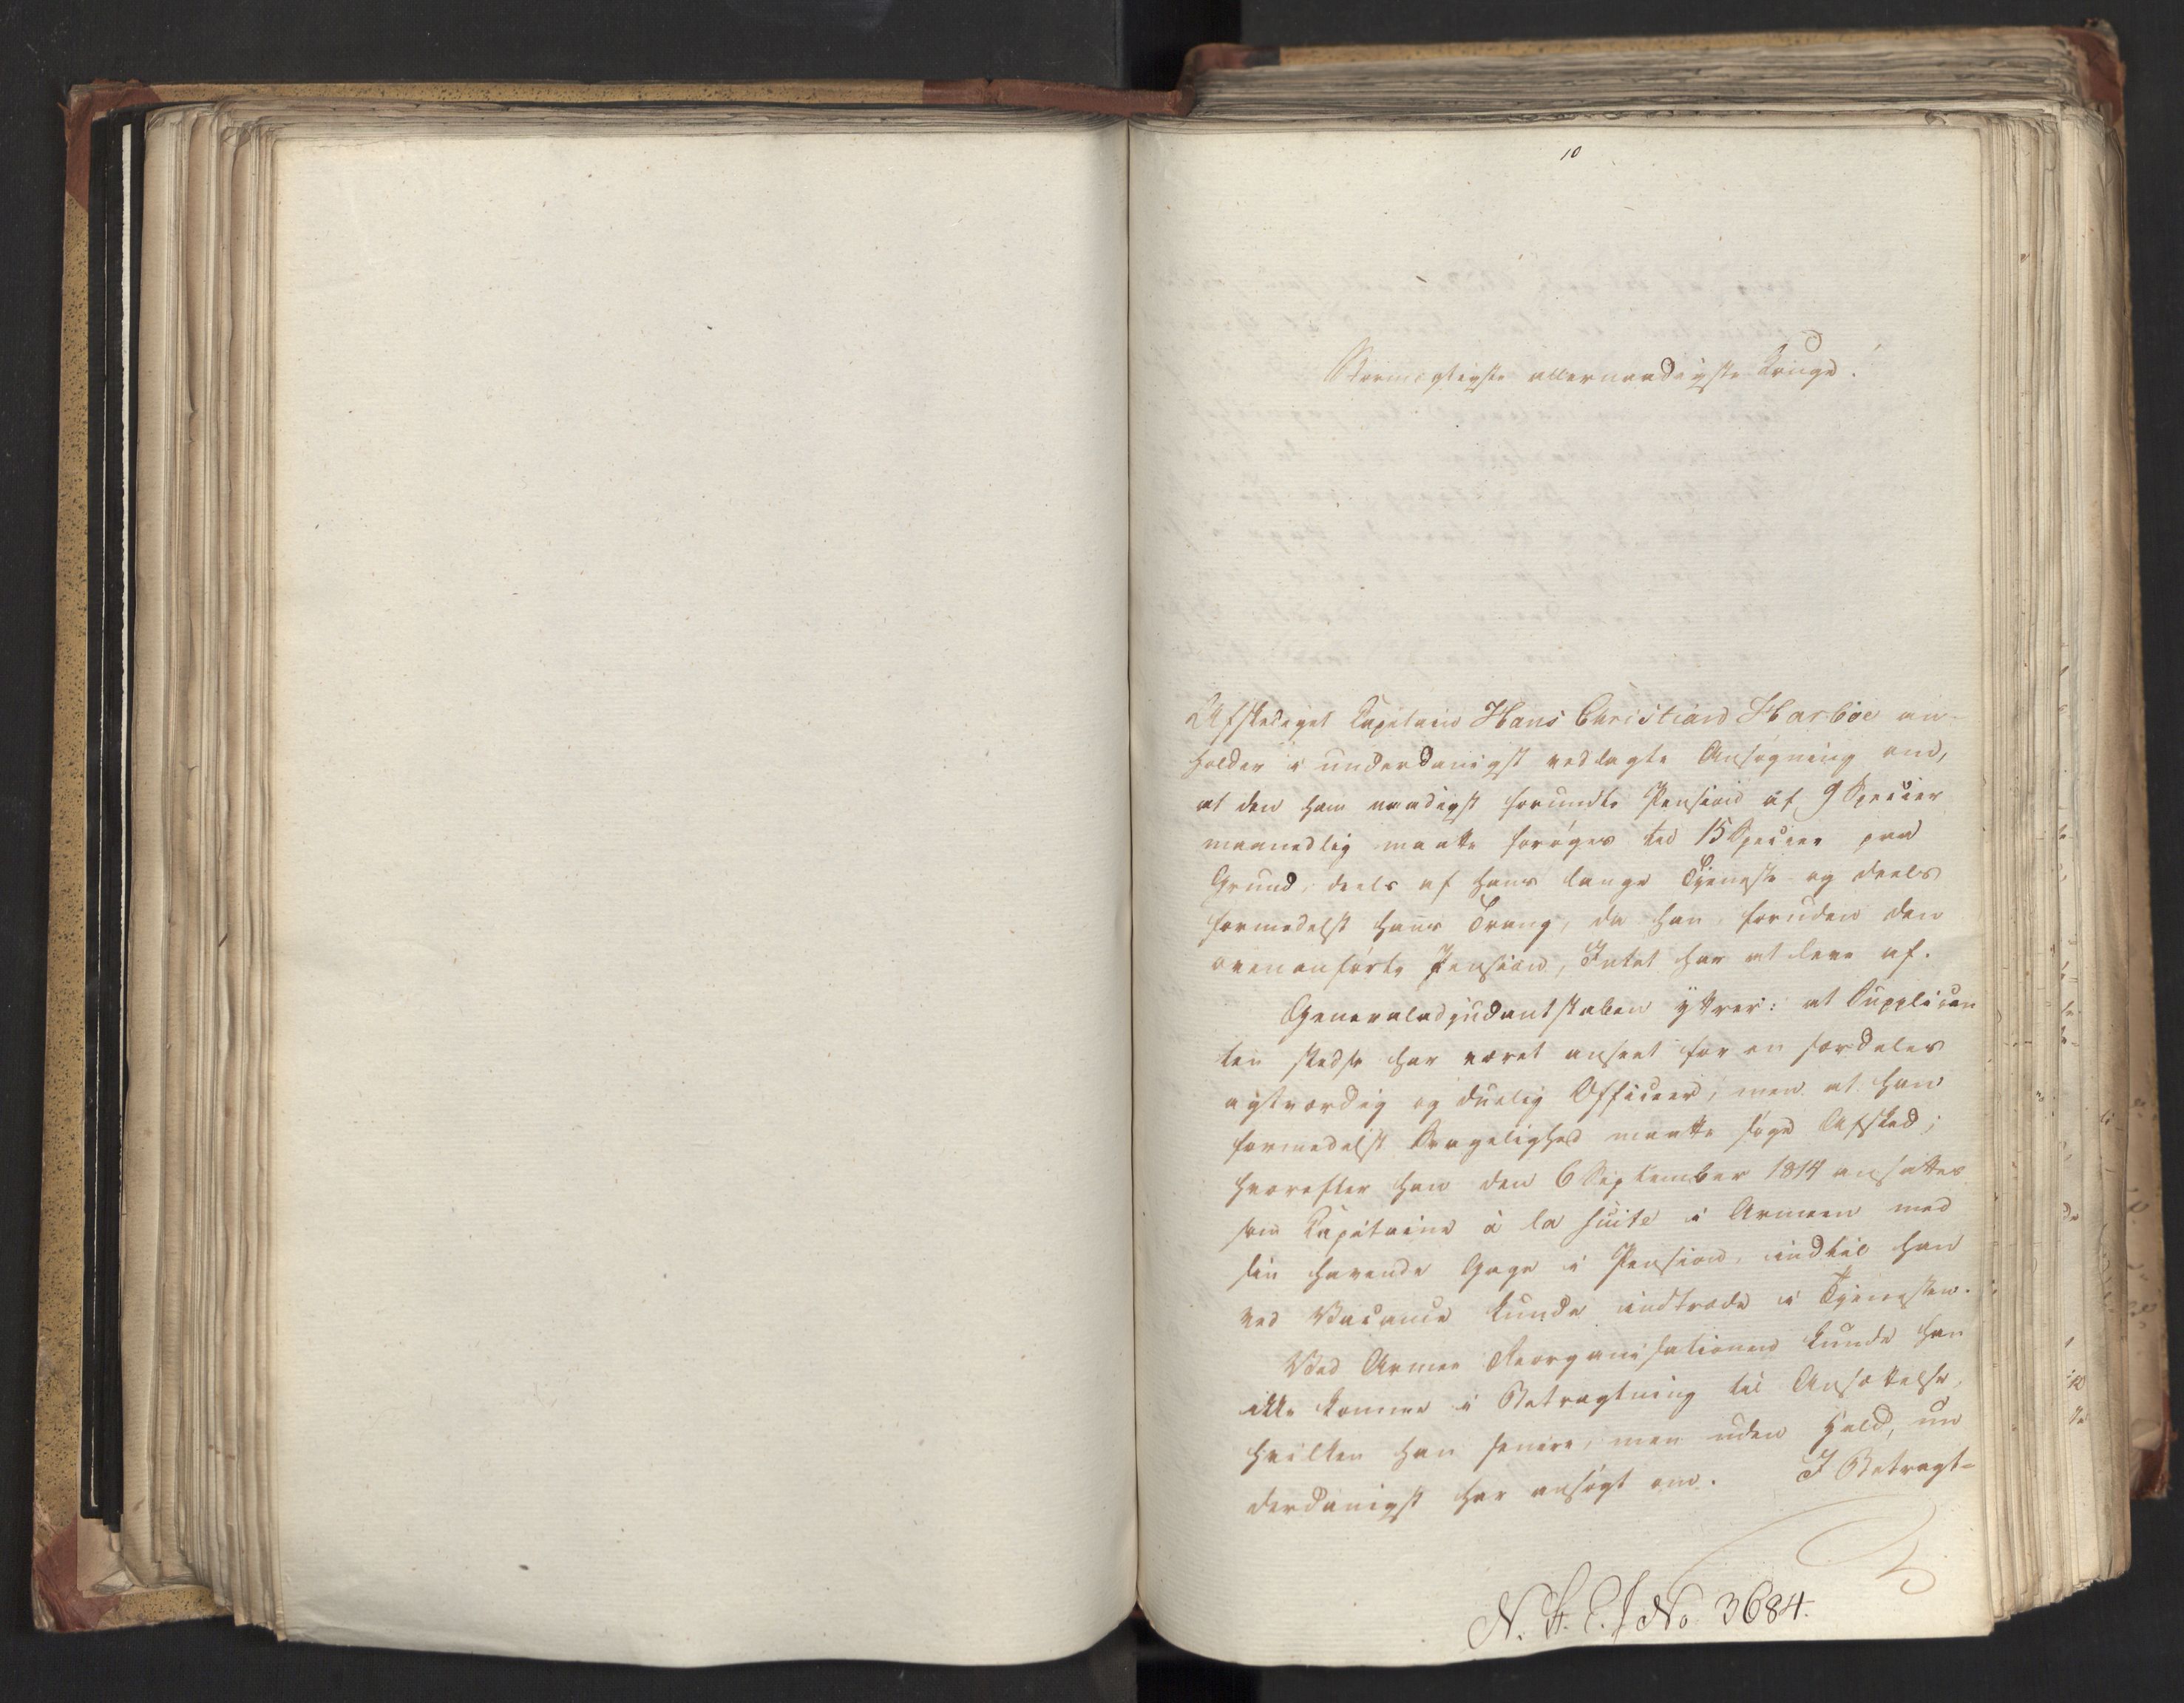 10
Stormægtigste allernaadigste Konge!
Afskediget Capitain Hans Christian Harboe an-
holder i underdanigst vedlagte Ansøgning om,
at den ham naadigst forundte Pension af 9 Specier
maanedlig maatte forøges til 15 Specier paa
Grund, deels af hans lange Tjeneste og deels
formedelst hans Trang, da han foruden den
ovenanførte Pension, Intet har at leve af.
Generaladjudantstaben yttrer: at Supplican
ten stedse har været anseet for en særdeles
agtværdig og duelig Officeer, men at han
formedelst Svagelighed maatte søge Afsked;
hvorefter han den 6 September 1814 ansattes
som Capitaine à la suite i Armeen med
sin havende Gage i Pension, indtil han
ved Vacance kunde indtræde i Tjenesten.
Ved Armee Reorganisationen kunde han
ikke komme i Betragtning til Ansættelse,
hvilken han senere, men uden Held, un
derdanigst har ansøgt om. I Betragt-
N. H. E. J No. 3684.